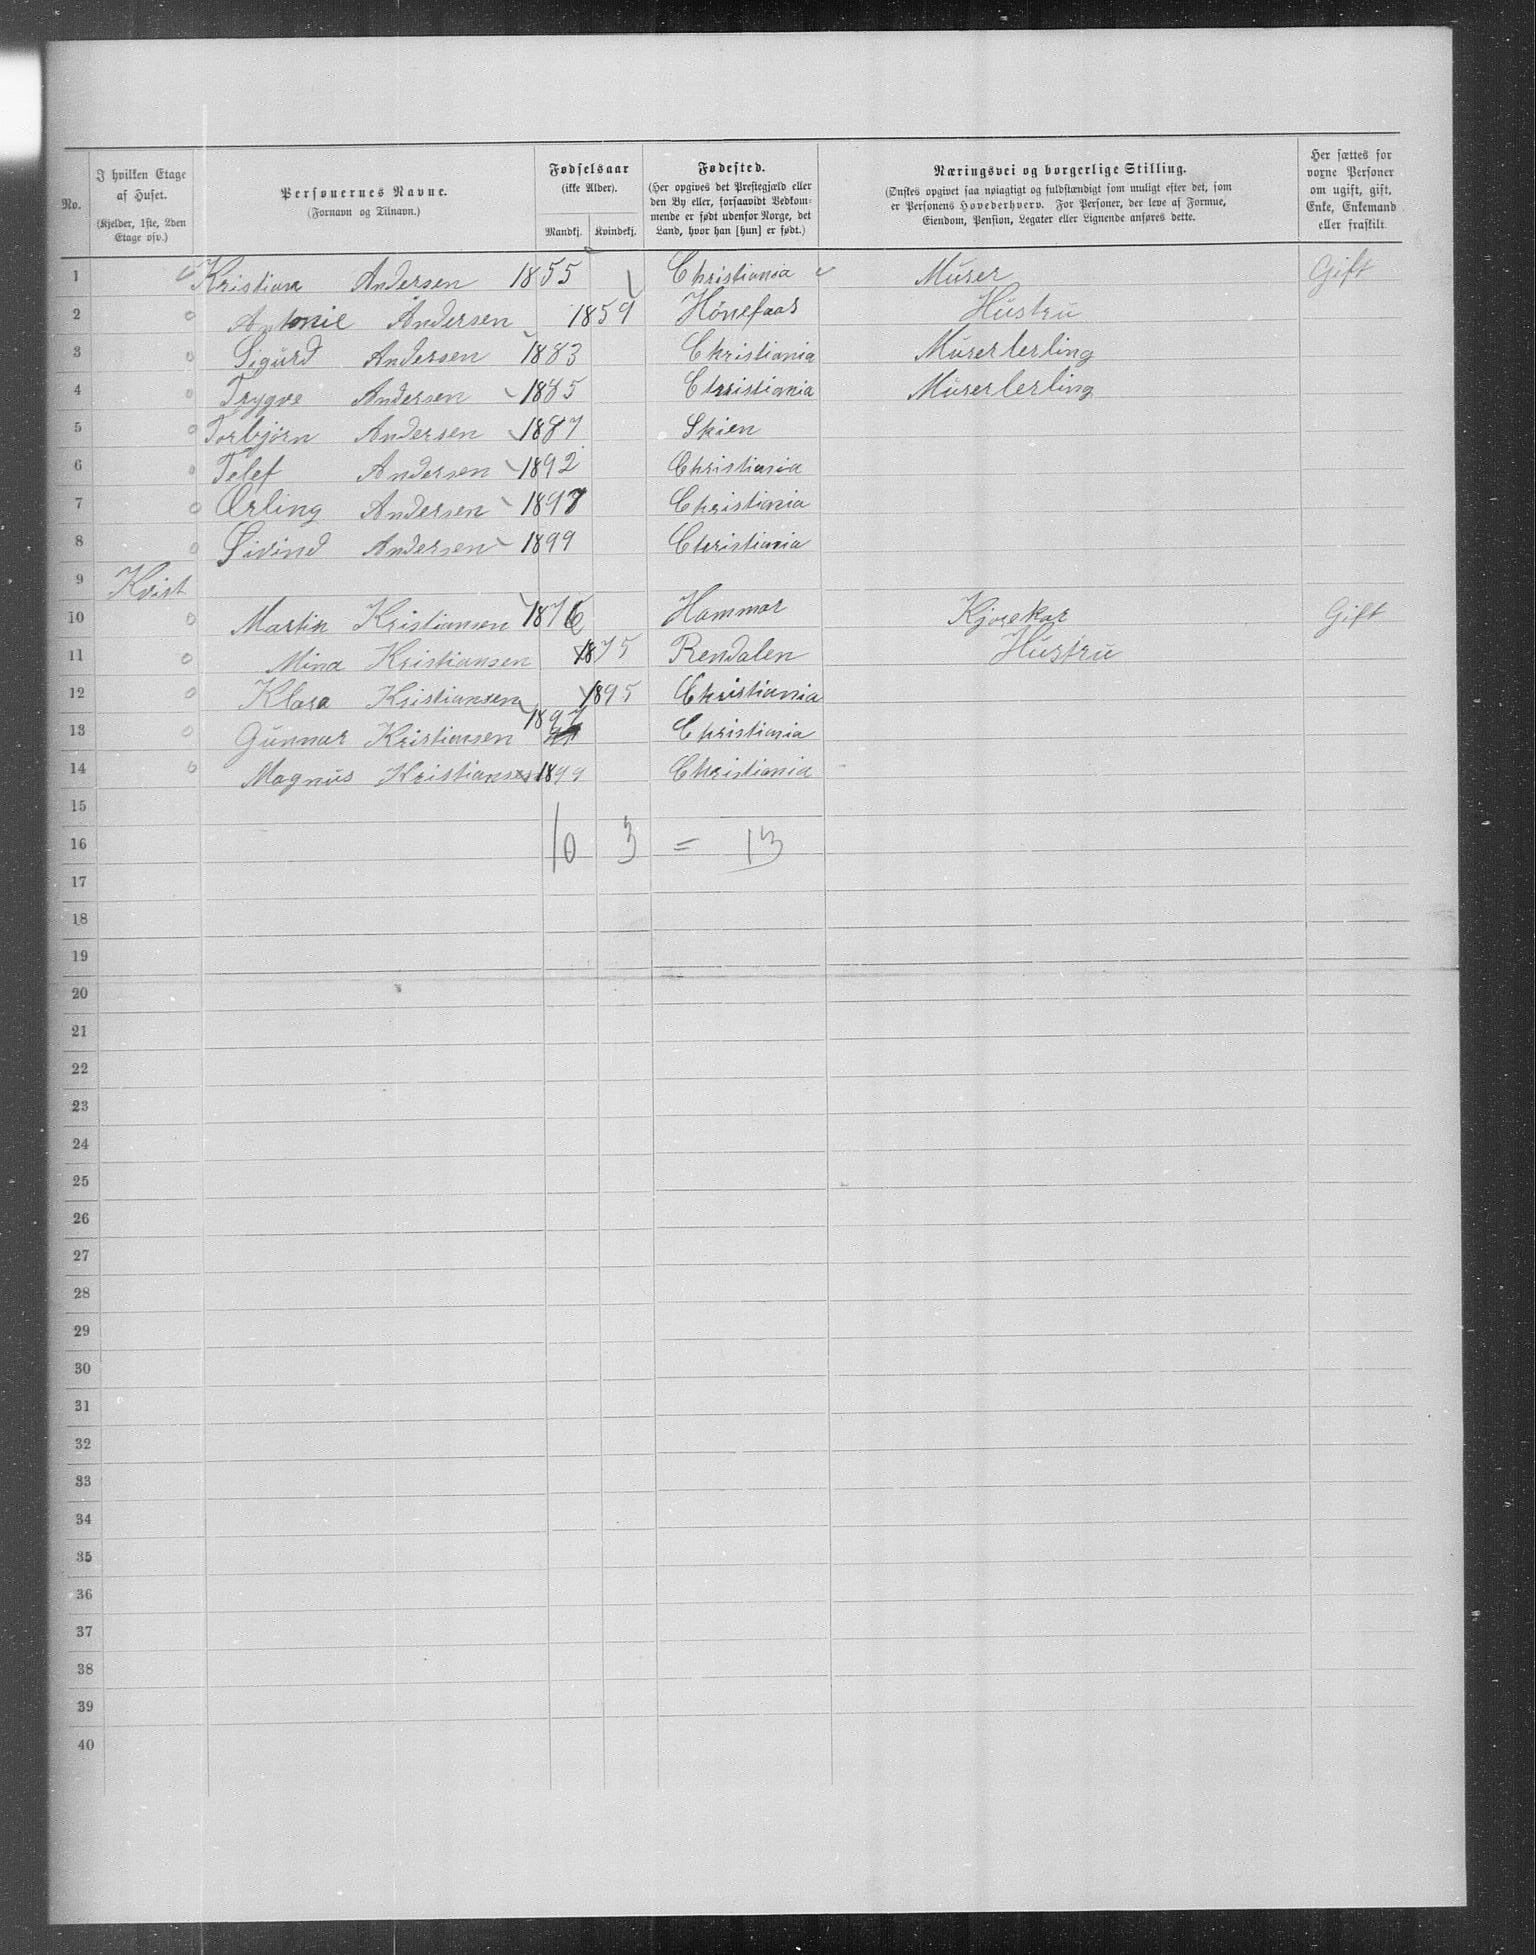 No.
I hvilken Etage af Huset.
(Kjelder, 1ste, 2den Etage osv.)
Personernes Navne.
(Fornavn og Tilnavn.)
Fødselsaar
(ikke Alder).
Mandkj. Kvindekj.
Fødested.
(Her opgives det Prestegjæld eller
den By eller, forsaavidt Vedkom-
mende er født udenfor Norge, det
Land, hvor han [hun] er født.)
Næringsvei og borgerlige Stilling.
(Ønskes opgivet saa nøiagtigt og fuldstændigt som muligt efter det, som
er Personens Hovederhverv. For Personer, der leve af Formue,
Eiendom, Pension, Legater eller Lignende anføres dette.
Her sættes for
voxne Personer
om ugift, gift,
Enke, Enkemand
eller fraskilt.
1 0 Kristian Andersen 1855 Christiania Murer Gift
2 0 Antonie Andersen 1859 Hönefaas Hustru
3 0 Sigurd Andersen 1883 Christiania Murerlerling
4 0 Trygve Andersen 1885 Christiania Murerlerling
5 0 Torbjørn Andersen 1887 Skien
6 0 Telef Andersen 1892 Christiania
7 0 Erling Andersen 1897 Christiania
8 0 Eivind Andersen 1899 Christiania
9 Kvist
10 0 Martin Kristiansen 1876 Hammar Kjørekar Gift
11 0 Mina Kristiansen 1875 Rendalen Hustru
12 0 Klara Kristiansen 1895 Christiania
13 0 Gunnar Kristiansen 1897 Christiania
14 0 Magnus Kristiansen 1899 Christiania
15
16 10 3 = 13
17
18
19
20
21
22
23
24
25
26
27
28
29
30
31
32
33
34
35
36
37
38
39
40